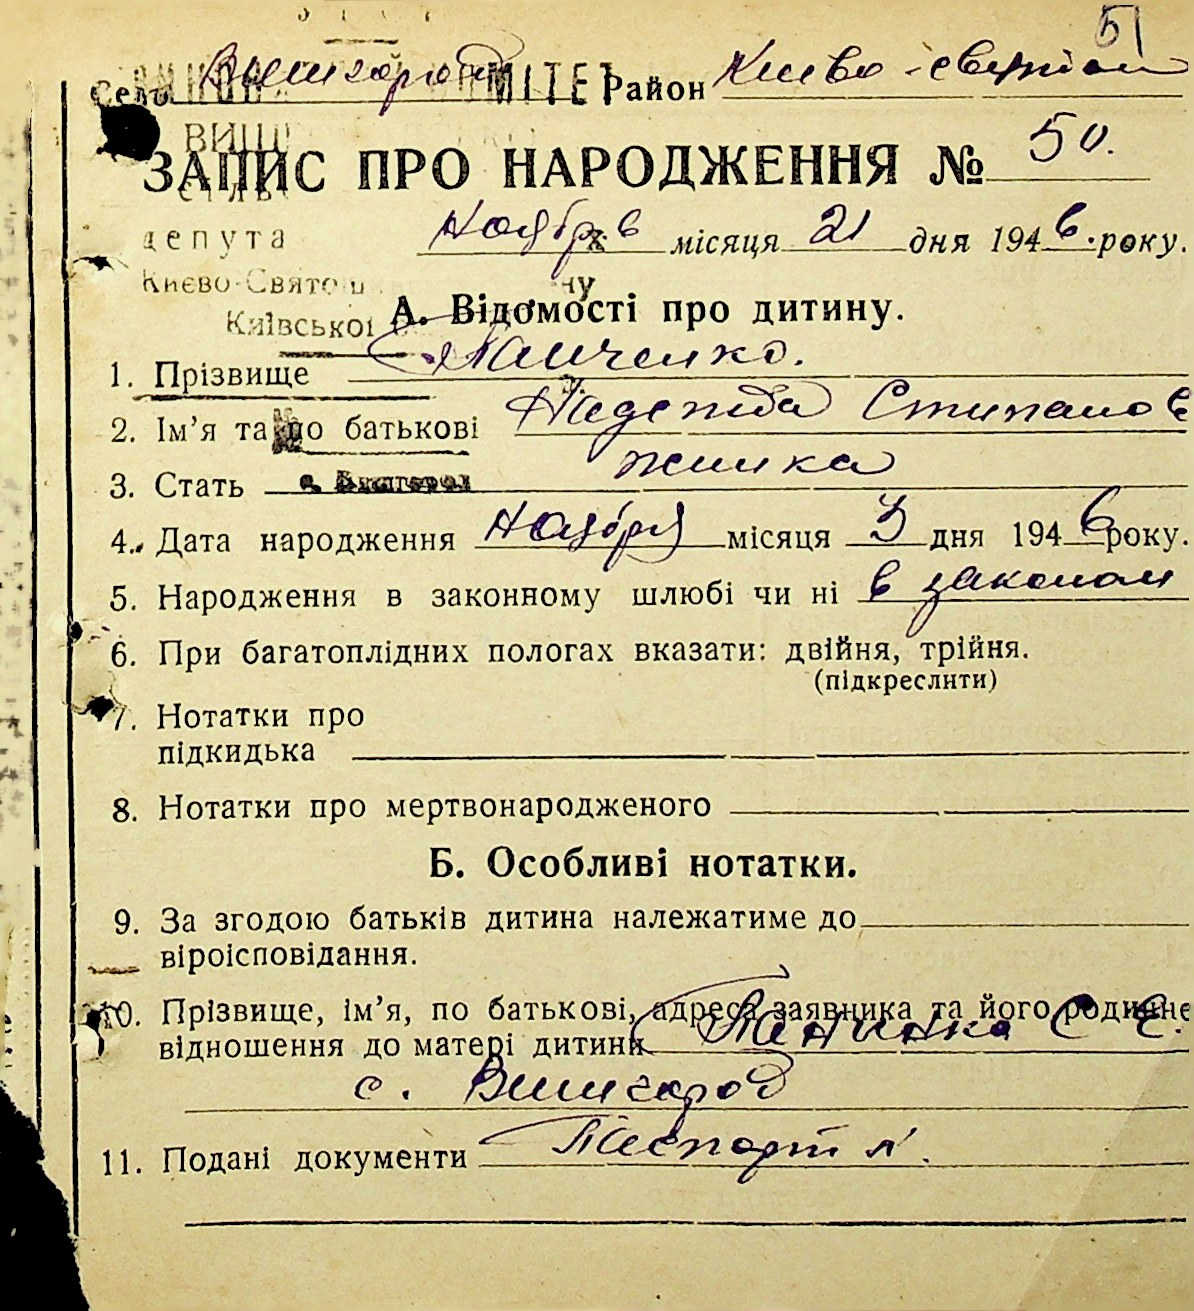 51
Село Вишгород Район Киево-святош
ВИШ
ЗАПИС ПРО НАРОДЖЕННЯ № 50.
депута
Ноября місяця 21 дня 1946. року.
Києво-Свято
А. Відомості про дитину.
Київської
1. Прізвище Панченко.
2. Ім'я та по батькові Надежда Степанов
3. Стать с. Вишгород жинка
4. Дата народження Ноября місяця 3 дня 1946 року.
5. Народження в законному шлюбі чи ні в законом
6. При багатоплідних пологах вказати: двійня, трійня.
(підкреслити)
7. Нотатки про
підкидька
8. Нотатки про мертвонародженого
Б. Особливі нотатки.
9. За згодою батьків дитина належатиме до
віроісповідання.
10. Прізвище, ім'я, по батькові, адреса заявника та його родинне
відношення до матері дитини Панчнка С Е.
с. Вишгород
11. Подані документи Паспорт